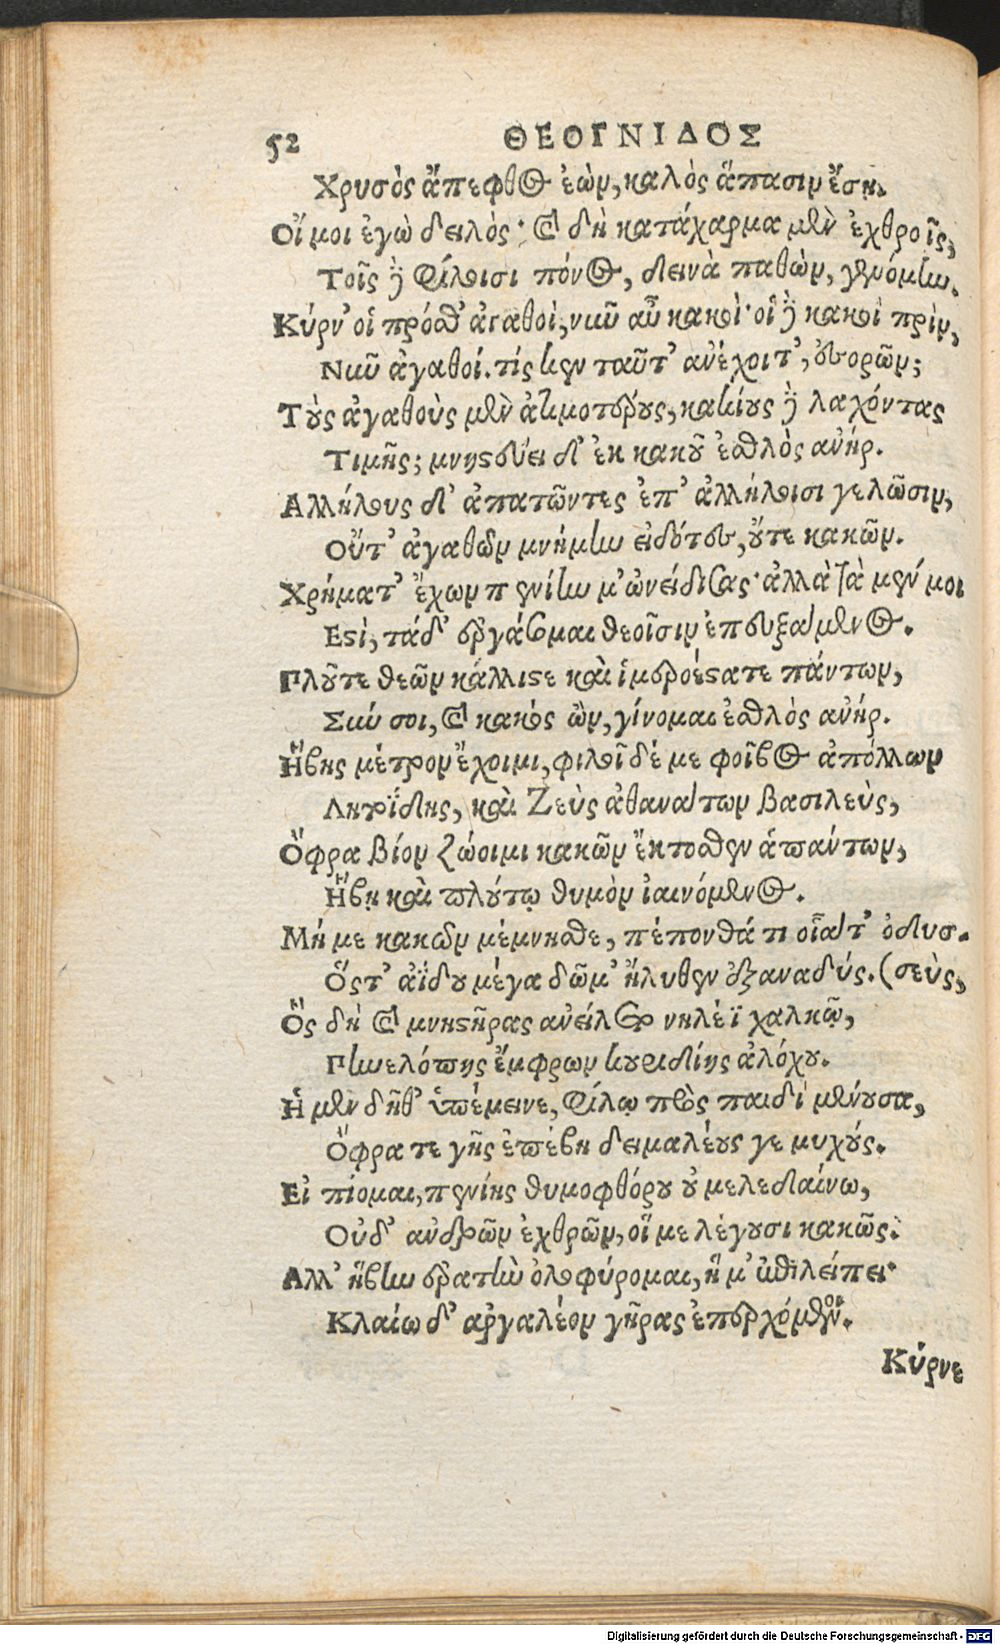 52 ΘΕΟΓΝΙΔΟΣ
Χρυσὸς ἄπεφθος ἐὼν, καλὸς ἅπασιν ἔσῃ.
Οἴ μοι ἐγὼ δειλός· καὶ δὴ κατάχαρμα μὲν ἐχθροῖς,
Τοῖς δὲ φίλοισι πόνος, δεινὰ παθὼν, γενόμην.
Κύρν' οἱ πρόσθ' ἀγαθοὶ, νῦν αὖ κακοὶ· οἳ δὲ κακοὶ πρὶν,
Νῦν ἀγαθοί. τίς κεν ταῦτ' ἀνέχοιτ', ἐσορῶν;
Τοὺς ἀγαθοὺς μὲν ἀτιμοτέρους, κακίους δὲ λαχόντας
Τιμῆς; μνηστεύει δ' ἐκ κακοῦ ἐσθλὸς ἀνήρ.
Αλλήλους δ' ἀπατῶντες ἐπ' ἀλλήλοισι γελῶσιν,
Οὔτ' ἀγαθῶν μνήμην εἰδότες, οὔτε κακῶν.
Χρήματ' ἔχων πενίην μ' ὠνείδισας· ἀλλὰ τὰ μέν μοι
Εστὶ, τάδ' ἐργάσομαι θεοῖσιν ἐπευξάμενος.
Πλοῦτε θεῶν κάλλιστε καὶ ἱμεροέστατε πάντων,
Σὺν σοι, καὶ κακός ὢν, γίνομαι ἐσθλὸς ἀνήρ.
Ἥβης μέτρον ἔχοιμι, φιλοῖ δέ με φοῖβος ἀπόλλων
Λητοΐδης, καὶ Ζεὺς ἀθανάτων βασιλεὺς,
Ὄφρα βίον ζώοιμι κακῶν ἔκτοσθεν ἁπάντων,
Ἥβῃ καὶ πλούτῳ θυμὸν ἰαινόμενος.
Μή με κακῶν μέμνησθε, πέπονθά τι οἷά τ' ὀδυσ-
Ὅστ' ἀΐδου μέγα δῶμ' ἤλυθεν ἐξαναδύς. (σεὺς,
Ὃς δὴ καὶ μνηστῆρας ἀνείλετο νηλέϊ χαλκῷ,
Πηνελόπης ἔμφρων κουριδίης ἀλόχου.
Ἡ μὲν δῆθ' ὑπέμεινε, φίλῳ πρὸς παιδὶ μένουσα,
Ὄφρα τε γῆς ἐπέβη δειμαλέους γε μυχούς.
Εἰ πίομαι, πενίης θυμοφθόρου οὐ μελεδαίνω,
Οὐδ' ἀνδρῶν ἐχθρῶν, οἵ με λέγουσι κακῶς.
Αλλ' ἥβην ἐρατὴν ὀλοφύρομαι, ἥ μ' ἐπιλείπει·
Κλαίω δ' ἀργαλέον γῆρας ἐπερχόμενον.
Κύρνε
Digitalisierung gefördert durch die Deutsche Forschungsgemeinschaft - DFG